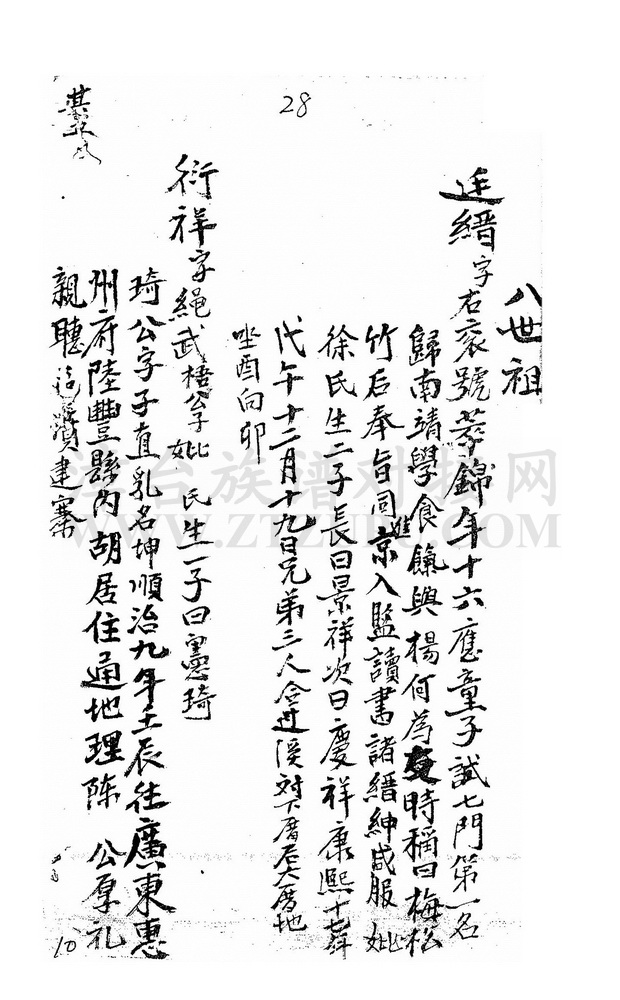 28
八世祖
廷縉字右袞號 錦年十六應童子試七門第一名
歸南靖學食餼與楊何為友時稱曰梅松
竹后奉旨同進京入監讀書諸縉紳咸服妣
徐氏生二子長曰景祥次曰慶祥康熙十七年
戊午十二月十九日兄弟三人合过溪对下厝后大厝地
坐酉向卯
衍祥字繩武梧公子妣 氏生一子曰憲琦
琦公字子直乳名坤順治九年壬辰往廣東惠
州府陸豐縣內胡居住通地理陈 公厚礼
親聽 建寨
10
台族谱对接网
WWW.ZTZUPU.COM